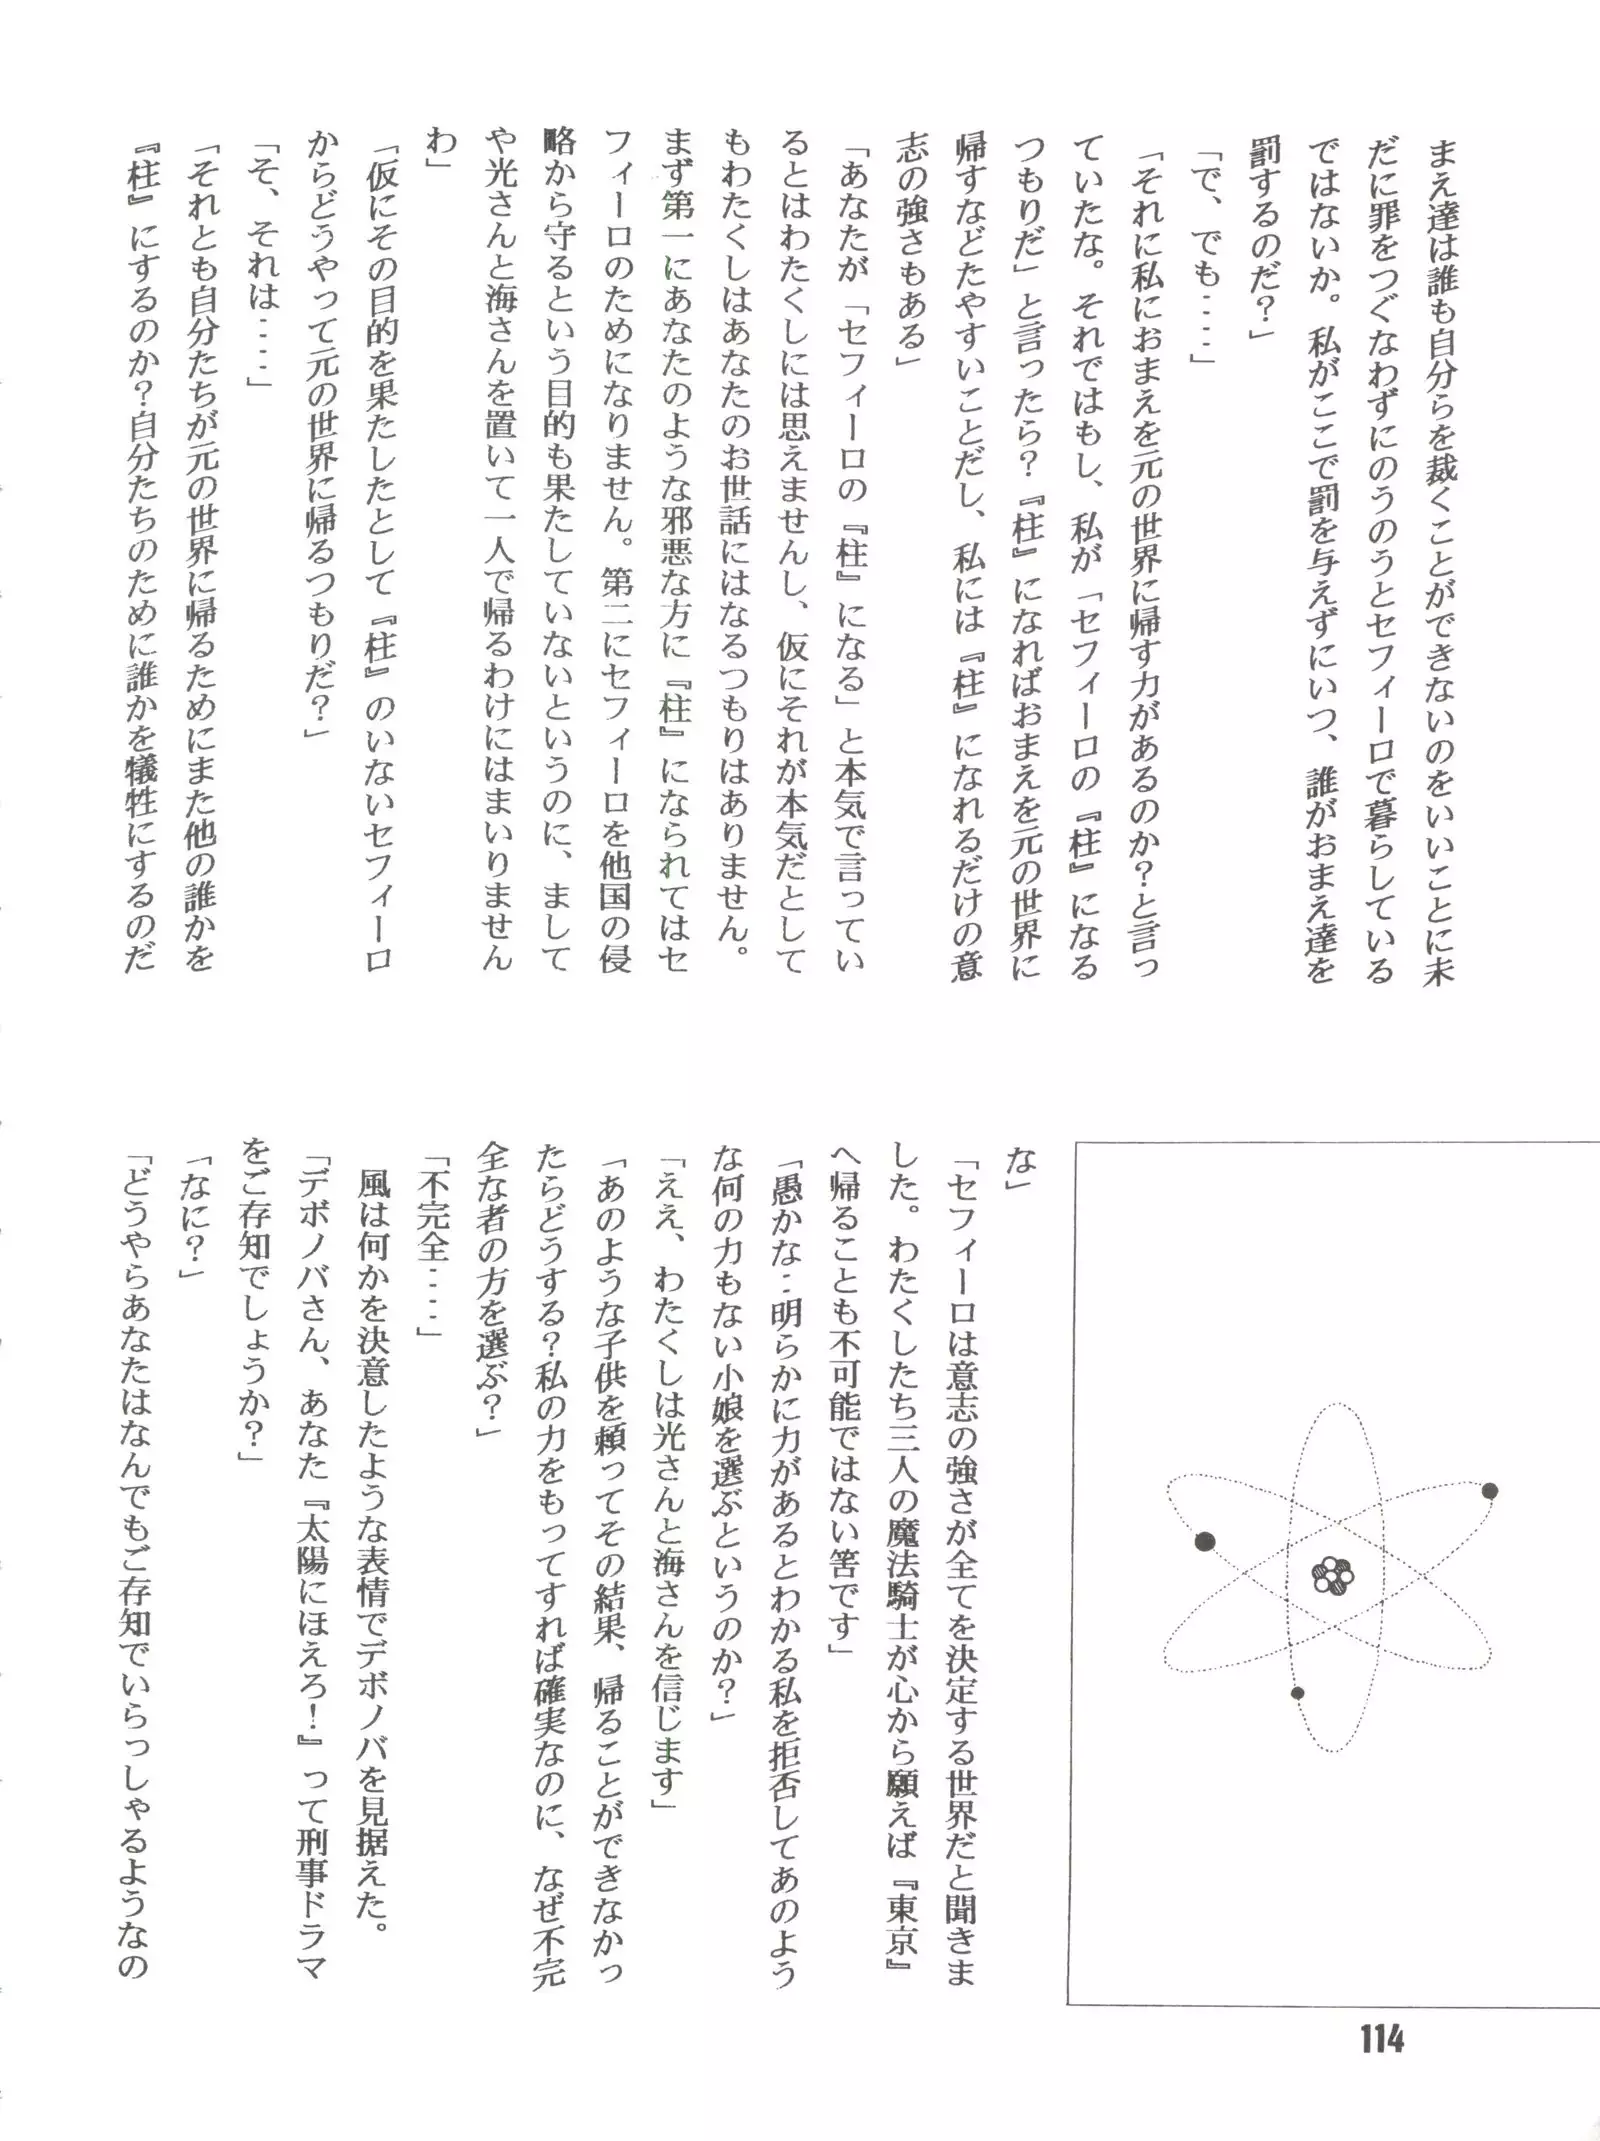 まえ達は誰も自分らを裁くことができないのをいいことに未
だに罪をつぐなわずにのうのうとセフィーロで暮らしている
ではないか。私がここで罰を与えずにいつ、誰がおまえ達を
罰するのだ？」
「で、でも‥‥」
「それに私におまえを元の世界に帰す力があるのか？と言っ
ていたな。それではもし、私が「セフィーロの『柱』になる
つもりだ」と言ったら？『柱』になればおまえを元の世界に
帰すなどたやすいことだし、私には『柱』になれるだけの意
志の強さもある」
「あなたが「セフィーロの『柱』になる」と本気で言ってい
るとはわたくしには思えませんし、仮にそれが本気だとして
もわたくしはあなたのお世話にはなるつもりはありません。
まず第一にあなたのような邪悪な方に『柱』になられてはセ
フィーロのためになりません。第二にセフィーロを他国の侵
略から守るという目的も果たしていないというのに、まして
や光さんと海さんを置いて一人で帰るわけにはまいりません
わ」
「仮にその目的を果たしたとして『柱』のいないセフィーロ
からどうやって元の世界に帰るつもりだ？」
「そ、それは‥‥」
「それとも自分たちが元の世界に帰るためにまた他の誰かを
『柱』にするのか？自分たちのために誰かを犠牲にするのだ
な」
「セフィーロは意志の強さが全てを決定する世界だと聞きま
した。わたくしたち三人の魔法騎士が心から願えば『東京』
へ帰ることも不可能ではない筈です」
「愚かな‥明らかに力があるとわかる私を拒否してあのよう
な何の力もない小娘を選ぶというのか？」
「ええ、わたくしは光さんと海さんを信じます」
「あのような子供を頼ってその結果、帰ることができなかっ
たらどうする？私の力をもってすれば確実なのに、なぜ不完
全な者の方を選ぶ？」
「不完全‥‥」
風は何かを決意したような表情でデボノバを見据えた。
「デボノバさん、あなた『太陽にほえろ！』って刑事ドラマ
をご存知でしょうか？」
「なに？」
「どうやらあなたはなんでもご存知でいらっしゃるようなの
114